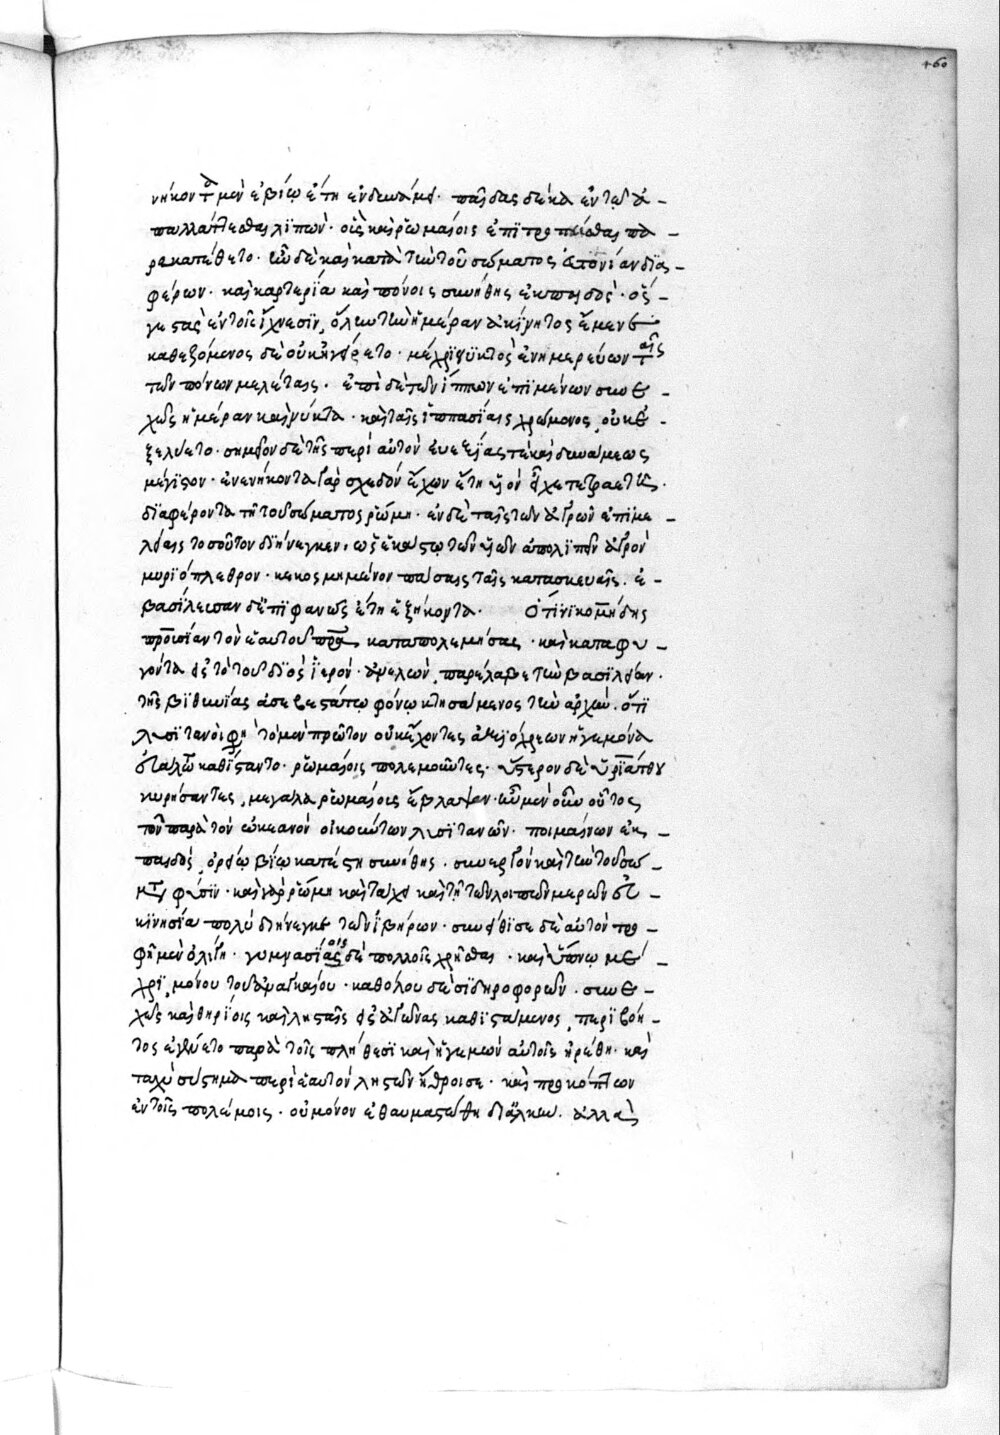 460
νήκοντα μὲν ἐβίω ἔτη ἐν δυνάμει· παῖδας δέκα ἐν τῶ ἀ-
παλλάττεσθαι λιπών· οἷς καὶ ῥωμαίοις ἐπιτροπεύεσθαι πα-
ρεκατέθετο· ὧν δὲ καὶ κατὰ τὴν τοῦ σώματος εὐτονίαν δια-
φέρων· καὶ καρτερία καὶ πόνοις συνήθης ἐκ παιδὸς· ὅς
γε στὰς ἐν τοῖς ἴχνεσιν, ὅλην τὴν ἡμέραν ἀκίνητος ἔμενε
καθεζόμενος δὲ οὐκ ἠγείρετο· μέχρι νυκτὸς ἐνημερεύων ταῖς
τῶν πόνων μελέταις· ἐπὶ δὲ τῶν ἵππων ἐπιμένων συνε-
χῶς ἡμέραν καὶ νύκτα· καὶ ταῖς ἱππασίαις χρώμενος, οὐκ ἐ-
ξελύετο· σημεῖον δὲ τῆς περὶ αὐτὸν εὐεξίας τὲ καὶ δυνάμεως
μέγιστον· ἐνενήκοντα γὰρ σχεδόν ἔχων ἔτη υἱὸν εἶχε τετραετῆ·
διαφέροντα τῆ τοῦ σώματος ῥώμη· ἐν δὲ ταῖς τῶν ἀγρῶν ἐπιμε-
λείαις τοσοῦτον διήνεγκεν, ὡς ἑκάστω τῶν υἱῶν ἀπολιπεῖν ἀγρὸν
μυριόπλεθρον· κεκοσμημένον πάσαις ταῖς κατασκευαῖς. ἐ-
βασίλευσαν δὲ ἐπιφανῶς ἔτη ἑξήκοντα· Ὅτι νικομήδης
προυσίαν τὸν ἑαυτοῦ πρα καταπολεμήσας· καὶ καταφυ-
γόντα εἰς τὸ τοῦ διὸς ἱερόν· ἀνελὼν, παρέλαβε τὴν βασιλείαν
τῆς βιθυνίας ἀσεβεστάτω φόνω κτησάμενος τὴν ἀρχήν. ὅτι
λυσιτανοί φη τὸ μὲν πρῶτον οὐκ ἔχοντες ἀξιόχρεων ἡγεμόνα
εὐάλωτοι καθίσταντο· ῥωμαίοις πολεμοῦντες· ὕστερον δὲ ὑριάτθου
κυρήσαντες, μεγάλα ῥωμαίους ἔβλαψαν· ἦν μὲν οὖν οὗτος
τῶν παρὰ τὸν ὠκεανὸν οἰκούντων λυσιτανῶν· ποιμαίνων ἐκ
παιδὸς, ὀρείω βίω κατέστη συνήθης· συνεργὸν καὶ τὴν τοῦ σώ-
ματος φύσιν· καὶ γὰρ ῥώμη καὶ τάχει καὶ τῆ τῶν λοιπῶν μερῶν εὐ-
κινησία πολὺ διήνεγκε τῶν ἰβήρων· συνείθισε δὲ αὑτὸν τρο-
φῆ μὲν ὀλίγη· γυμνασίοις δὲ πολλοῖς χρῆσθαι· καὶ ὕπνω μέ-
χρι, μόνου τοῦ ἀναγκαίου· καθόλου δὲ σιδηροφορῶν· συνε-
χῶς καὶ θηρίοις καὶ λησταῖς εἰς ἀγῶνας καθιστάμενος, περιβόη-
τος ἐγένετο παρὰ τοῖς πλήθεσι καὶ ἡγεμὼν αὐτοῖς ἡρέθη· καὶ
ταχὺ σύστημα περὶ ἑαυτὸν ληστῶν ἤθροισε· καὶ προκόπτων
ἐν τοῖς πολέμοις· οὐ μόνον ἐθαυμαστώθη δι' ἀλκὴν. ἀλλὰ